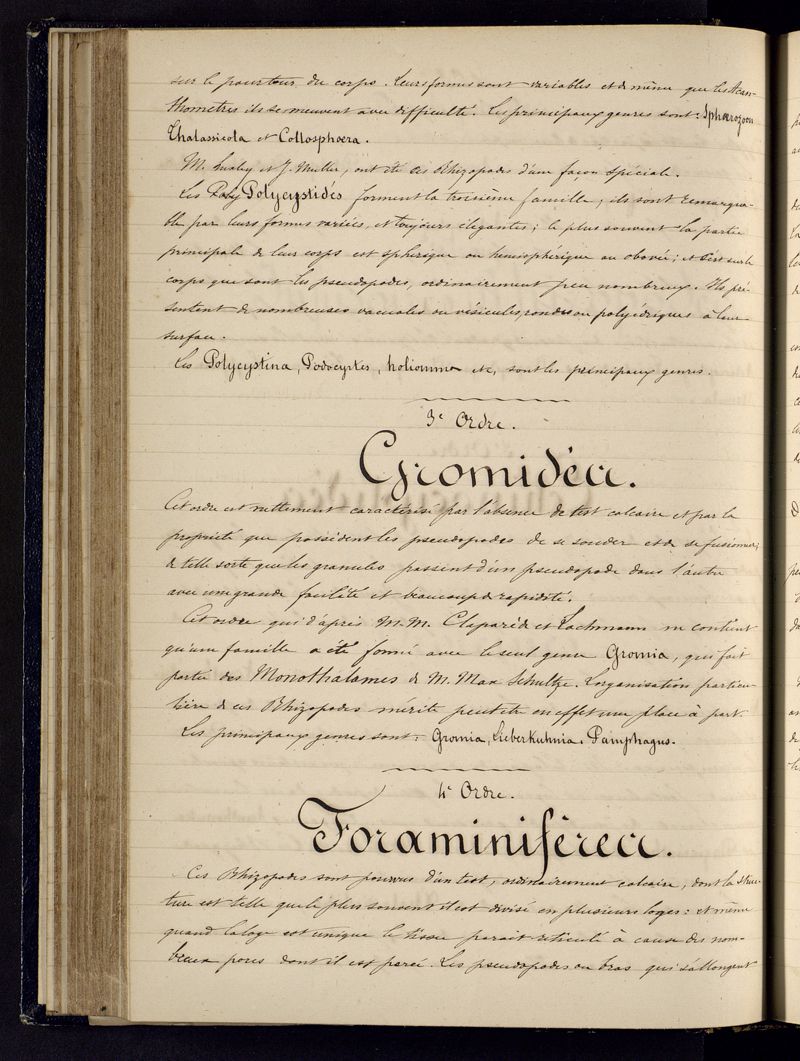 sur le pourtour du corps. Leurs formes sont variables et de même que les Acan-
thometres ils se meuvent avec difficulté. Les principaux genres sont: Sphærozoon
Thalassicola et Collosphæra.
M. Huxley et J. Muller, ont été ces Rhizopodes d'une façon spéciale.
Les Poly Polycystidés forment la troisième famille; ils sont remarqua-
ble par leurs formes variées, et toujours élegantes; le plus souvent la partie
principale de leur corps est sphérique ou hemisphérique ou obovée; et c'est sur le
corps que sont les pseudopodes, ordinairement peu nombreux. Ils pré-
sentent de nombreuses vacuoles ou vésicules, rondes ou polyédriques à leur
surface.
Les Polycystina, Podocyrtes, haliomma etc, sont les principaux genres.
3e Ordre.
Gromidéa.
Cet ordre est nettement caractérisé par l'absence de test calcaire et par la
propriété que possèdent les pseudopodes de se souder et de se fusionner;
de telle sorte que les granules passent d'un pseudopode dans l'autre
avec une grande facilité et beaucoup de rapidité.
Cet ordre qui d'après M.M. Claparède et Lachmann ne contient
qu'une famille a été formé avec le seul genre Gromia, qui fait
partie des Monothalames de M. Max Schultze. L'organisation particu-
lière de ces Rhizopodes mérite peut etre en effet une place à part.
Les principaux genres sont: Gromia, Lieberkuhnia, Pamphagus.
4e Ordre.
Foraminifèrea.
Ces Rhizopodes sont pourvus d'un test, ordinairement calcaire, dont la struc-
ture est telle que le plus souvent il est divisé en plusieurs loges: et même
quand la loge est unique le tissu parait réticulé à cause des nom-
breux pores dont il est percé. Les pseudopodes ou bras qui s'allongent